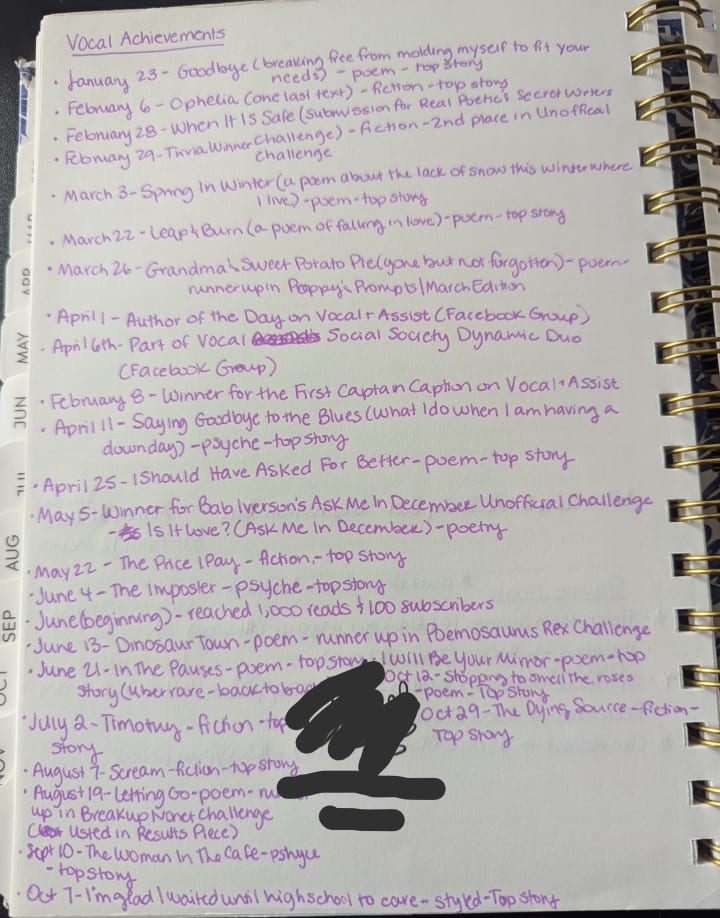 Vocal Achievements
• January 23 - Goodbye (breaking free from molding myself to fit your
needs) - poem - top story
• February 6 - Ophelia (one last text) - fiction - top story
• February 28 - When It Is Safe (submission for Real Poetic's Secret Writers
Challenge) - fiction - 2nd place in Unoffical
challenge
• February 29 - Trivia Winner
• March 3 - Spring In Winter (a poem about the lack of snow this winter where
I live) - poem - top story
• March 22 - Leap & Burn (a poem of falling in love) - poem - top story
• March 26 - Grandma's Sweet Potato Pie (gone but not forgotten) - poem -
runner up in Poppy's Prompts | March Edition
• April 1 - Author of the Day on Vocal + Assist (Facebook Group)
• April 6th - Part of Vocal Social Society Dynamic Duo
(Facebook Group)
• February 8 - Winner for the First Captain Caption on Vocal + Assist
• April 11 - Saying Goodbye to the Blues (What I do when I am having a
down day) - psyche - top story
• April 25 - I Should Have Asked For Better - poem - top story
• May 5 - Winner for Bab Iverson's Ask Me In December Unofficial Challenge
- Is It Love? (Ask Me In December) - poetry
• May 22 - The Price I Pay - fiction - top story
• June 4 - The Imposter - psyche - top story
• June (beginning) - reached 1,000 reads & 100 subscribers
• June 13 - Dinosaur Town - poem - runner up in Poemosaurus Rex Challenge
• June 21 - In The Pauses - poem - top story, I Will Be Your Mirror - poem - top
story (uber rare - back to back
Oct 12 - Stopping to smell the roses
- poem - Top Story
• July 2 - Timothy - fiction - top
story
Oct 29 - The Dying Source - fiction -
Top Story
• August 7 - Scream - fiction - top story
• August 19 - Letting Go - poem -
up in Breakup Nonet Challenge
(Listed in Results Piece)
• Sept 10 - The Woman In The Cafe - pshyce
- top story
• Oct 7 - I'm glad I waited until high school to care - styled - Top Story
MAY
JUN
JUL
AUG
SEP
OCT
NOV
APR